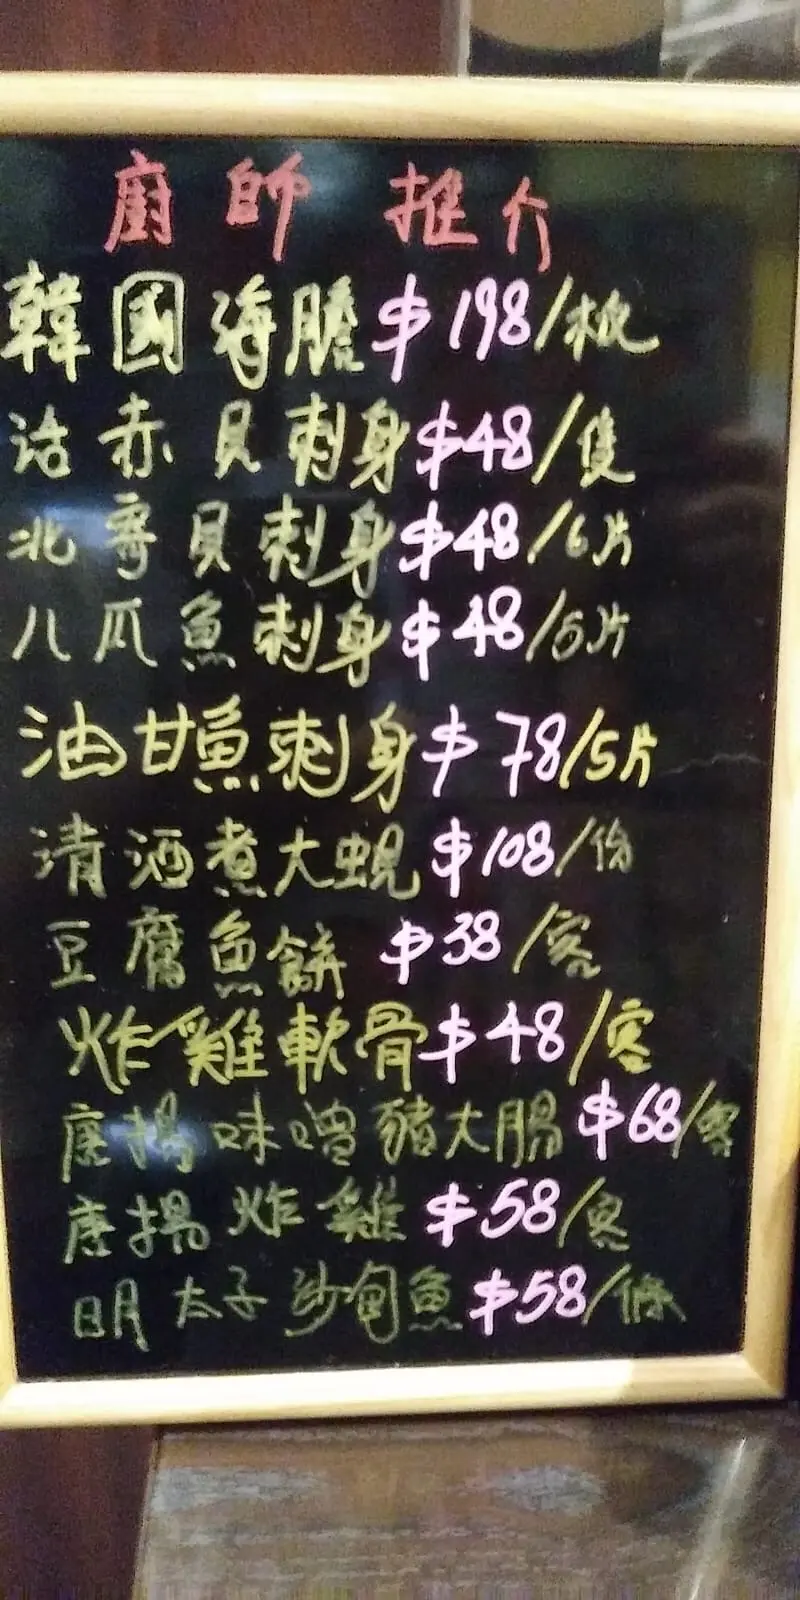 廚師推介
韓國海膽$198/板
活赤貝刺身$48/隻
北寄貝刺身$48/6片
八爪魚刺身$48/5片
油甘魚刺身$78/5片
清酒煮大蜆$108/份
豆腐魚餅$38/客
炸雞軟骨$48/客
唐揚味噌豬大腸$68/客
唐揚炸雞$58/客
明太子沙甸魚$58/條